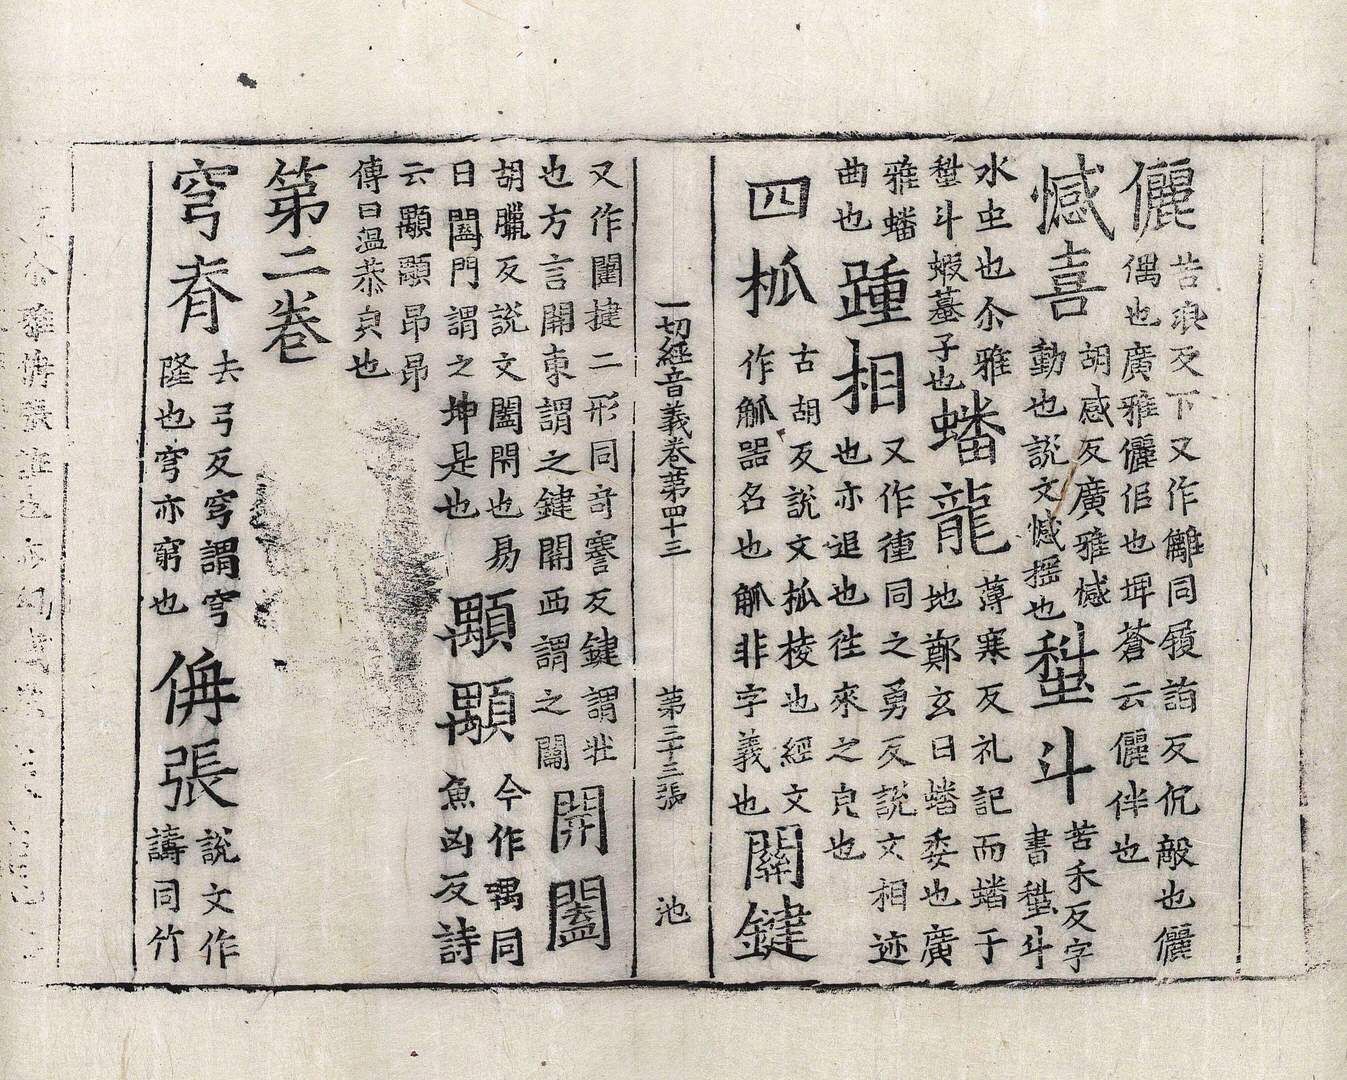 儷
苦浪反下又作離同履詣反伉敵也儷
偶也廣雅儷伉也埤蒼云儷伴也
憾喜
胡感反廣雅憾
動也說文憾搖也
蝌斗
苦禾反字
書蝌斗
水虫也尒雅
蝌斗蝦蟇子也
蟠龍
薄寒反礼記而蟠于
地鄭玄曰蟠委也廣
雅蟠
曲也
踵相
又作歱同之勇反說文相迹
也亦追也往來之皃也
四柧
古胡反說文柧棱也經文
作觚器名也觚非字義也
關鍵
一切經音義卷第四十三 第三十三張 池
又作闑揵二形同奇謇反鍵謂壯
也方言關東謂之鍵關西謂之闟
開闔
胡臘反說文闔閇也易
曰闔門謂之坤是也
顒顒
今作喁同
魚凶反詩
云顒顒昂昂
傳曰温恭皃也
第二卷
穹脊
去弓反穹謂穹
隆也穹亦窮也
侜張
說文作
譸同竹